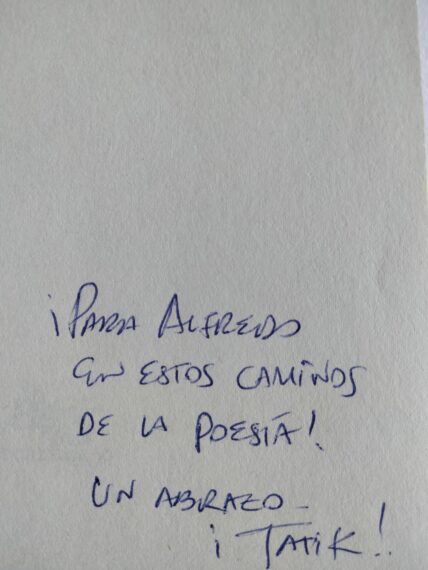 ¡PARA ALFREDO
EN ESTOS CAMINOS
DE LA POESÍA!
UN ABRAZO_
¡TATIK!